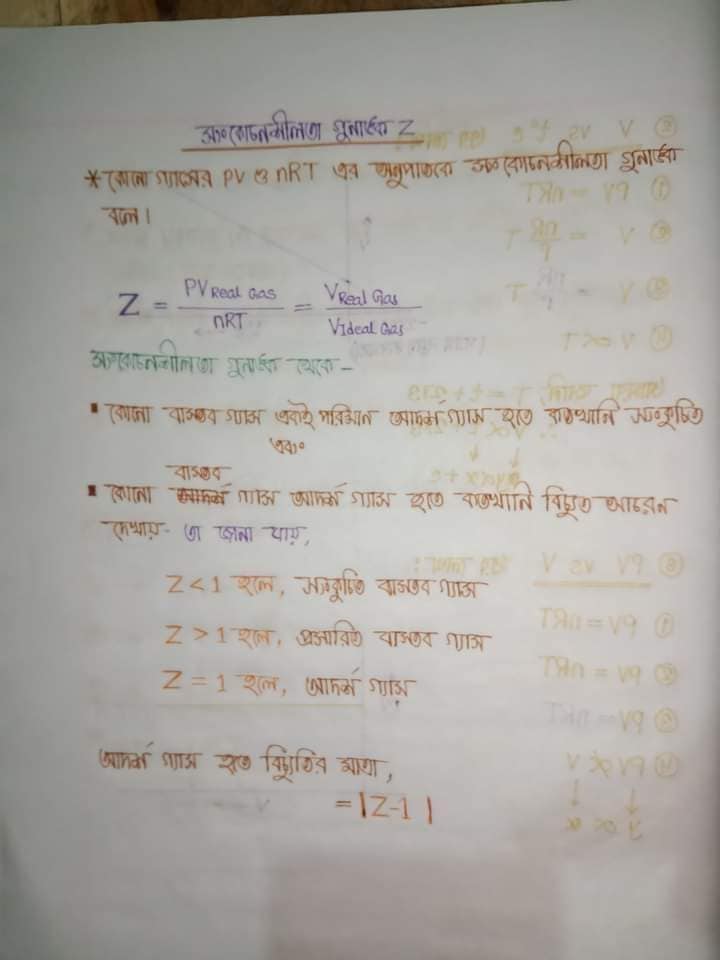 সংকোচনশীলতা গুনাঙ্ক Z
* কোনো গ্যাসের PV ও nRT এর অনুপাতকে সংকোচনশীলতা গুনাঙ্ক
বলে।
Z = PV Real Gas / nRT = V Real Gas / V Ideal Gas
সংকোচনশীলতা গুনাঙ্ক থেকে -
▪ কোনো বাস্তব গ্যাস একই পরিমান আদর্শ গ্যাস হতে কতখানি সংকুচিত
এবং
বাস্তব
▪ কোনো গ্যাস আদর্শ গ্যাস হতে কতখানি বিচ্যুত আচরন
দেখায় - তা জানা যায়,
Z < 1 হলে, সংকুচিত বাস্তব গ্যাস
Z > 1 হলে, প্রসারিত বাস্তব গ্যাস
Z = 1 হলে, আদর্শ গ্যাস
আদর্শ গ্যাস হতে বিচ্যুতির মাত্রা,
= |Z-1|